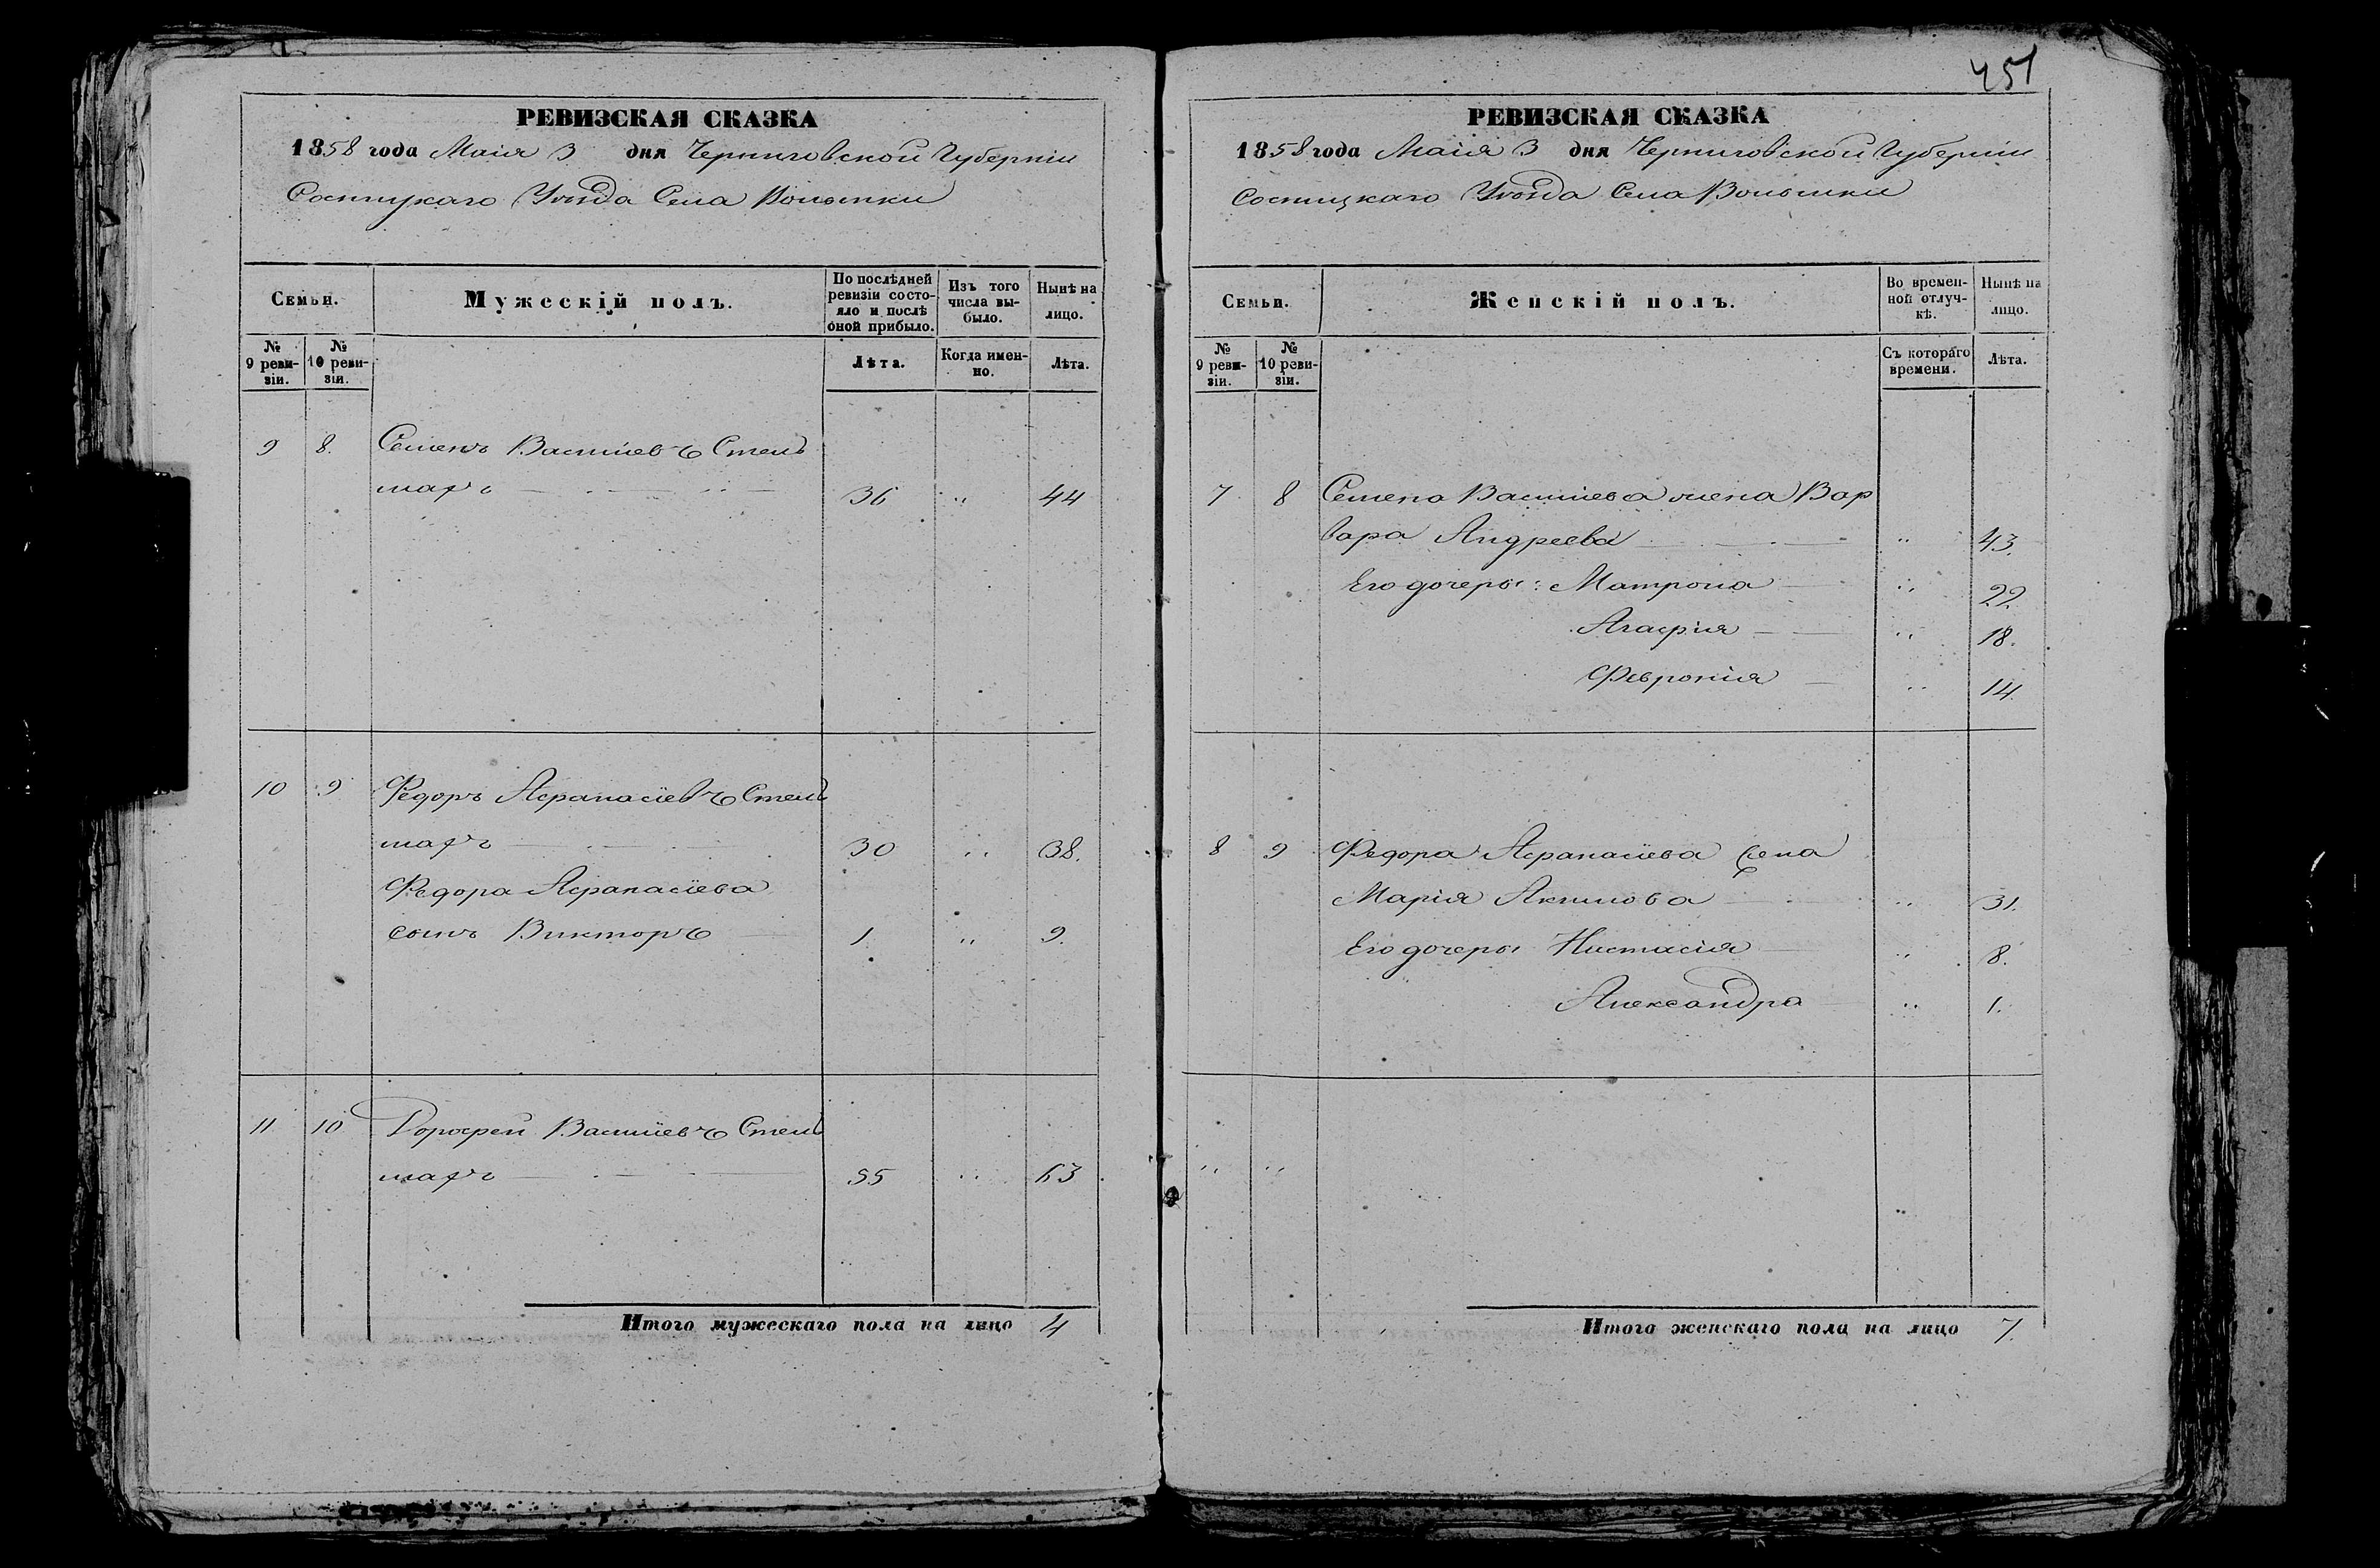 РЕВИЗСКАЯ СКАЗКА
1858 года Маія 3 дня Черниговской Губерніи
Сосницкаго Уѣзда Села Волынки
Семьи.
Мужескій полъ.
По послѣдней ревизіи состояло и послѣ оной прибыло.
Изъ того числа выбыло.
Нынѣ на лицо.
№ 9 ревизіи.
№ 10 ревизіи.
Лѣта.
Когда именно.
Лѣта.
9 8. Семенъ Васильевъ Стель
махъ 36 " 44
10 9 Федоръ Афанасіевъ Стель
махъ 30 " 38.
Федора Афанасіева
сынъ Викторъ 1. " 9.
11 10 Дорофей Васильевъ Стель
махъ 55 " 63
Итого мужескаго пола на лицо 4
451
РЕВИЗСКАЯ СКАЗКА
1858 года Маія 3 дня Черниговской Губерніи
Сосницкаго Уѣзда Села Волынки
Семьи.
Женскій полъ.
Во временной отлучкѣ.
Нынѣ на лицо.
№ 9 ревизіи.
№ 10 ревизіи.
Съ котораго времени.
Лѣта.
7 8 Семена Васильева жена Вар
вара Андреева " 43.
Его дочеры: Матрона " 22.
Агафия " 18.
Феврония " 14.
8 9 Федора Афанасіева жена
Марія Акимова " 31.
Его дочеры Настасія " 8.
Александра " 1.
" "
Итого женскаго пола на лицо 7.